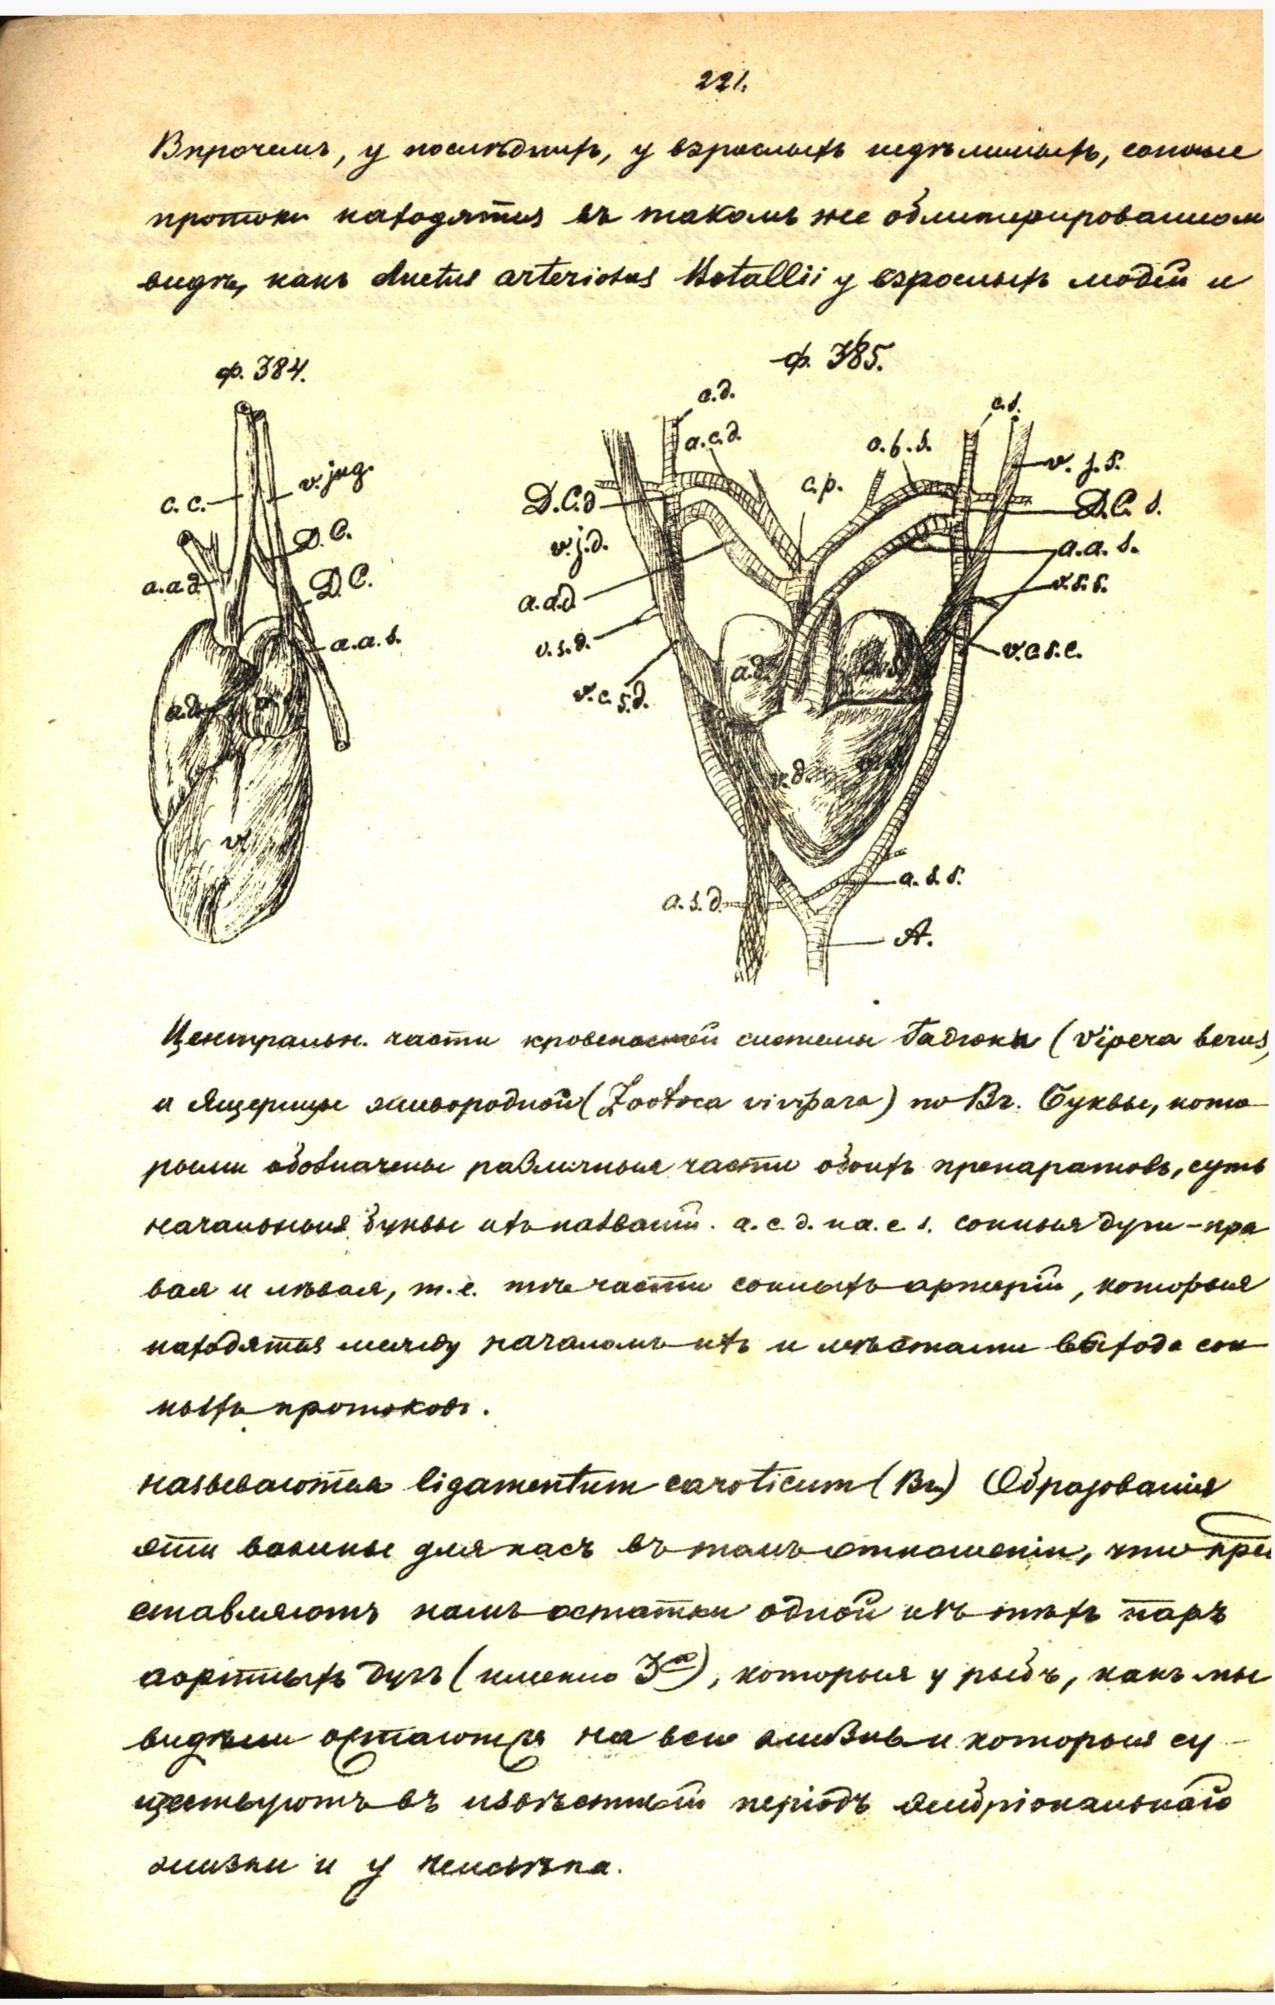 221.
Впрочемъ, у послѣднихъ, у взрослыхъ недѣлимыхъ, сонные
протоки находятся въ такомъ же облитерированном
видѣ, какъ ductus arteriosus Botallii у взрослыхъ людей и
ф. 384.
ф. 385.
c.d.
c.s.
a.c.d.
v. jug.
v. j. s.
c.c.
c.p.
D.C.d
D.C. s.
D.C.
v.j.d.
a.a. s.
a.a.d
D.C.
v.s.s.
a.a.d.
a.a.s.
v.s.d.
v.c.s.c.
a.d.
v.c.s.d.
a.d.
v.d.
v.
a.s.s.
a.s.d.
A.
Центральн. части кровеносной системы Гадюки (Vipera berus)
и Ящерицы живородной (Zootoca vivipara) по Br. Буквы, кото-
рыми обозначены различныя части обоихъ препаратовъ, суть
начальныя буквы ихъ названій. a.c.d. и a.c s. сонныя дуги - пра
вая и лѣвая, т.е. тѣ части сонныхъ артерій, которыя
находятся между началомъ ихъ и мѣстами выхода сон-
ныхъ протоковъ.
называются ligamentum caroticum (Br.) Образованія
эти важны для насъ въ томъ отношеніи, что пред
ставляютъ намъ остатки одной изъ тѣхъ паръ
аортныхъ дугъ (именно 3ей), которыя у рыбъ, какъ мы
видѣли остаются на всю жизнь и которыя су-
ществуютъ въ извѣстный періодъ эмбріональнаго
жизни и у человѣка.